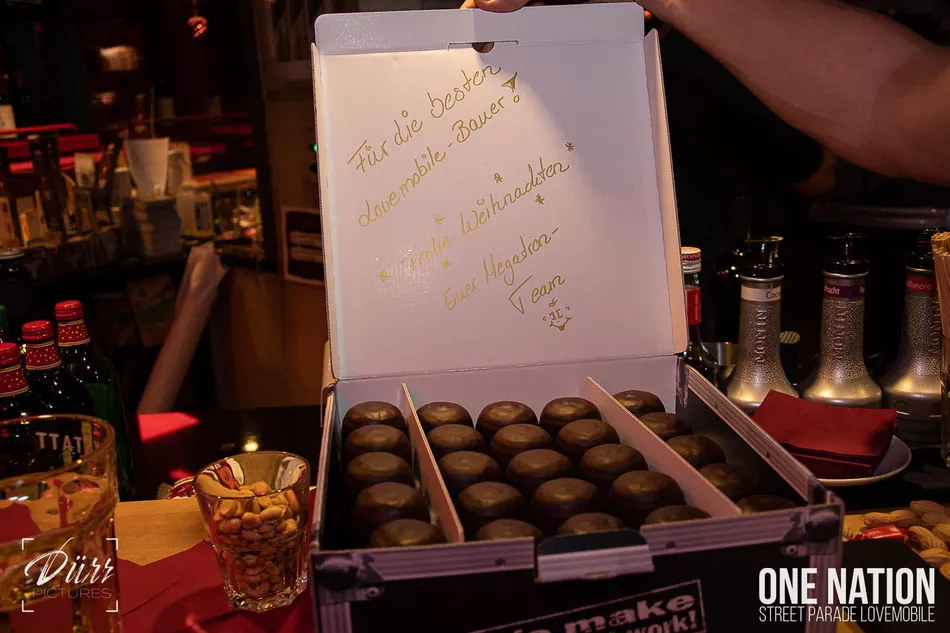 Für die besten
Lovemobile-Bauer!
* Frohe Weihnachten *
Euer Megatron-
Team
TATT
make
work!
Dürr
PICTURES
ONE NATION
STREET PARADE LOVEMOBILE